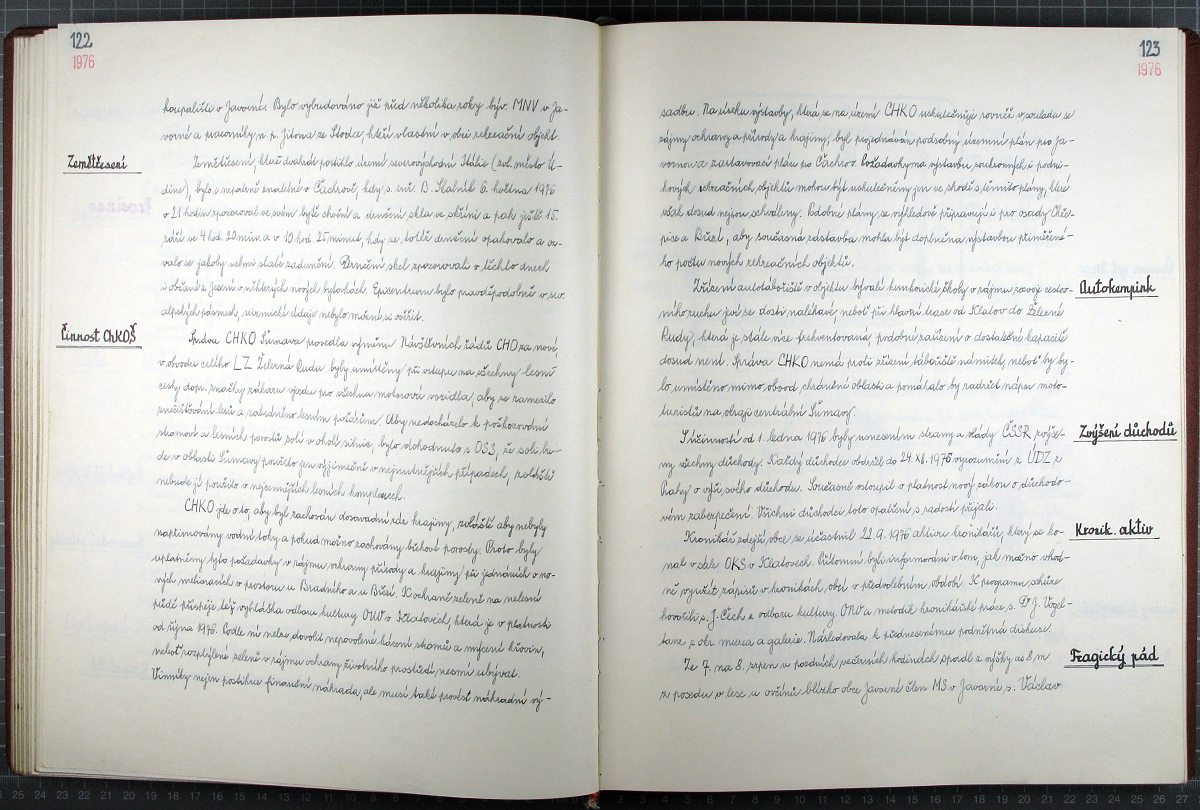 122
1976
koupaliště v Javorné. Bylo vybudováno již před několika roky býv. MNV v Ja-
vorné a pracovníky n. p. Jitona ze Stoda, kteří vlastní v obci rekreační objekt.
Zemětřesení
Zemětřesení, které dvakrát postihlo území severovýchodní Itálie (zvl. město U-
dine), bylo i nepatrně znatelné v Čachrově, kdy s. inž. B. Slatník 6. května 1976
o 21 hodin zpozoroval ve svém bytě chvění a drnčení skla ve skříni a pak ještě 15.
září ve 4 hod. 20 min. a v 10 hod. 25 minut, kdy se totéž drnčení opakovalo a o-
valo se jakoby velmi slabé zadunění. Drnčení skel zpozorovali v těchto dnech
i občané z Jesení v některých nových bytovkách. Epicentrum bylo pravděpodobně v sv.
alpských pásmech, seismické údaje nebylo možné si ověřit.
Činnost ChKOŠ
Správa CHKO Šumava provedla výměnu Návštěvních řádů CHO za nové,
v obvodu celého LZ Železná Ruda byly umístěny při vstupu na všechny lesní
cesty dopr. značky zákazu vjezdu pro všechna motorová vozidla, aby se zamezilo
znečišťování lesů a zabránilo lesním požárům. Aby nedocházelo k poškozování
stromoví a lesních porostů solí v okolí silnic, bylo dohodnuto s OSS, že soli bu-
de v oblasti Šumavy použito jen výjimečně v nejnutnějších případech, zvláště
nebude jí použito v nejcennějších lesních komplexech.
CHKO jde o to, aby byl zachován dosavadní ráz krajiny, zvláště aby nebyly
napřimovány vodní toky a pokud možno zachovány břehové porosty. Proto byly
uplatněny tyto požadavky v zájmu ochrany přírody a krajiny při jednáních o no-
vých melioracích v prostoru u Bradného a u Březí. K ochraně zeleně na nelesní
půdě přispěje též vyhláška odboru kultury ONV v Klatovech, která je v platnosti
od října 1976. Podle ní nelze dovolit nepovolené kácení stromů a mýcení křovin,
neboť rozptýlené zeleně v zájmu ochrany životního prostředí nesmí ubývat.
Viníky nejen postihne finanční náhrada, ale musí také provést náhradní vý-
123
1976
sadbu. Na úseku výstavby, která se na území CHKO uskutečňuje rovněž v souladu se
zájmy ochrany a přírody a krajiny, byl projednáván podrobný územní plán pro Ja-
vornou a zastavovací plán pro Čachrov. Požadavky na výstavbu soukromých i podni-
kových rekreačních objektů mohou být uskutečněny jen ve shodě s těmito plány, které
však dosud nejsou schváleny. Podobné plány se výhledově připravují i pro osady Chře-
pice a Březí, aby současná zástavba mohla být doplněna výstavbou přiměřené-
ho počtu nových rekreačních objektů.
Autokempink
Zřízení autotábořiště v objektu bývalé kembovické školy v zájmu rozvoje cestov-
ního ruchu jeví se dosti naléhavé, neboť při hlavní trase od Klatov do Železné
Rudy, která je stále více frekventovaná, podobné zařízení o dostatečné kapacitě
dosud není. Správa CHKO nemá proti zřízení tábořiště námitek, neboť by by-
lo umístěno mimo obvod chráněné oblasti a pomáhalo by zadržet nápor moto-
turistů na okraji centrální Šumavy.
Zvýšení důchodů
S účinností od 1. ledna 1976 byly usnesením strany a vlády ČSSR zvýše-
ny všechny důchody. Každý důchodce obdržel do 24. XII. 1976 vyrozumění z ÚDZ z
Prahy o výši svého důchodu. Současně vstoupil v platnost nový zákon o důchodo-
vém zabezpečení. Všichni důchodci toto opatření s radostí přijali.
Kronik. aktiv
Kronikář zdejší obce se účastnil 22. 9. 1976 aktivu kronikářů, který se ko-
nal v sále OKS v Klatovech. Přítomní byli informováni o tom, jak možno vhod-
ně využít zápisů v kronikách obcí v předvolebním období. K programu schůze
hovořili s. J. Čech z odboru kultury ONV a metodik kronikářské práce s. Dr J. Vogel-
tanz z okr. muzea a galerie. Následovala k přednesenému podnětná diskuse.
Tragický pád
Ze 7. na 8. srpen v pozdních večerních hodinách spadl z výšky asi 8 m
z posedu v lese u ovčínů blízko obce Javorné člen MS v Javorné, s. Václav